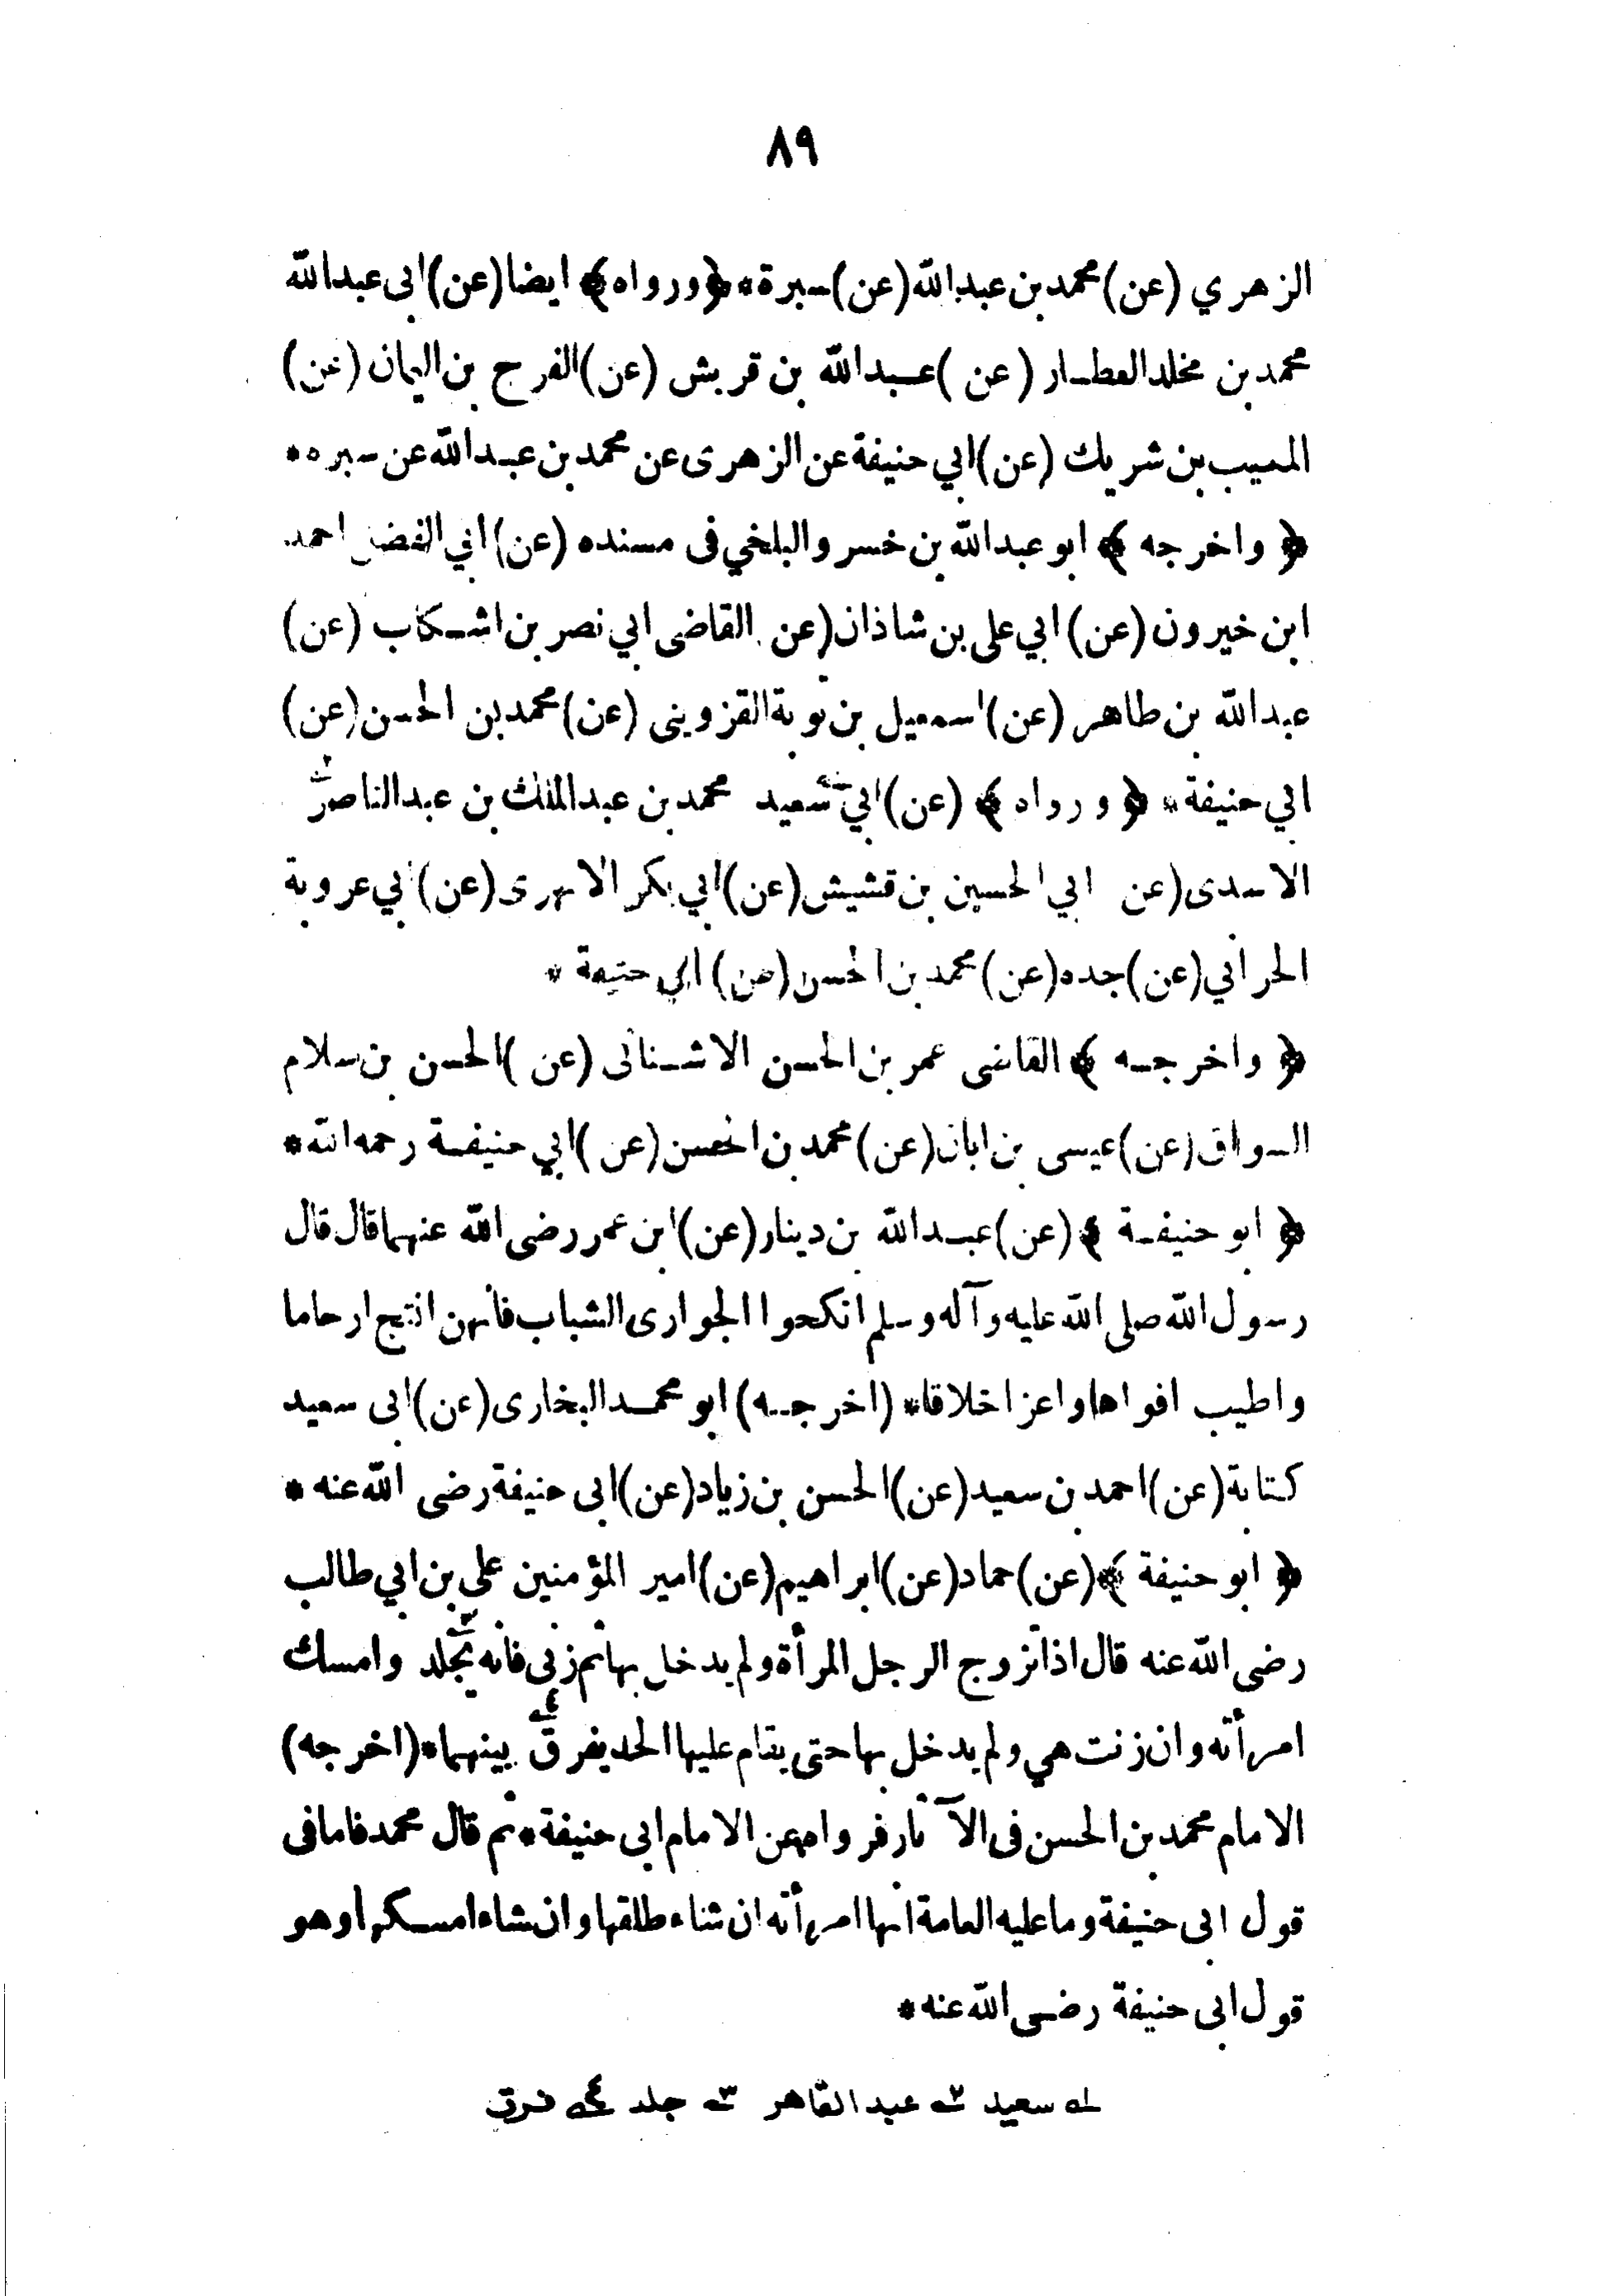 ٨٩
الزهري (عن) محمد بن عبدالله (عن) سبرة * ﴿ ورواه ﴾ ايضا (عن) ابى عبدالله
محمد بن مخلد العطار (عن) عبدالله بن قريش (عن) الفرج بن اليمان (عن)
المسيب بن شريك (عن) ابي حنيفة عن الزهرى عن محمد بن عبدالله عن سبره *
﴿ واخرجه ﴾ ابو عبدالله بن خسرو البلخي فى مسنده (عن) ابي الفضل احمد
ابن خيرون (عن) ابي على بن شاذان (عن القاضى ابي نصر بن اشكاب (عن)
عبدالله بن طاهر (عن) اسمعيل بن توبة القزوينى (عن) محمد بن الحسن (عن)
ابي حنيفة * ﴿ ورواه ﴾ (عن) ابي سعيد محمد بن عبدالملك بن عبدالناصر
الاسدى (عن ابي الحسين بن قشيش (عن) ابي بكر الابهرى (عن) ابي عروبة
الحراني (عن) جده (عن) محمد بن الحسن (عن) ابي حنيفة *
﴿ واخرجه ﴾ القاضى عمر بن الحسن الاشنانى (عن) الحسن بن سلام
السواق (عن) عيسى بن ابان (عن) محمد بن الحسن (عن) ابي حنيفة رحمه الله *
﴿ ابو حنيفة ﴾ (عن) عبدالله بن دينار (عن) ابن عمر رضى الله عنهما قال قال
رسول الله صلى الله عليه وآله وسلم انكحوا الجوارى الشباب فانهن انتج ارحاما
واطيب افواها واعز اخلاقا * (اخرجه) ابو محمد البخارى (عن) ابى سعيد
كتابة (عن) احمد بن سعيد (عن) الحسن بن زياد (عن) ابى حنيفة رضى الله عنه *
﴿ ابو حنيفة ﴾ (عن) حماد (عن) ابراهيم (عن) امير المؤمنين على بن ابي طالب
رضى الله عنه قال اذا تزوج الرجل المرأة ولم يدخل بها ثم زنى فانه يجلد وامسك
امرأته وان زنت هي ولم يدخل بها حتى يقام عليها الحد يفرق بينهما * (اخرجه)
الامام محمد بن الحسن فى الآثار فرواه عن الامام ابى حنيفة * ثم قال محمد فاما فى
قول ابى حنيفة وما عليه العامة انها امرأته ان شاء طلقها وان شاء امسكها وهو
قول ابى حنيفة رضى الله عنه *
١ سعيد ٢ عبد القاهر ٣ جلد ٤ فرق